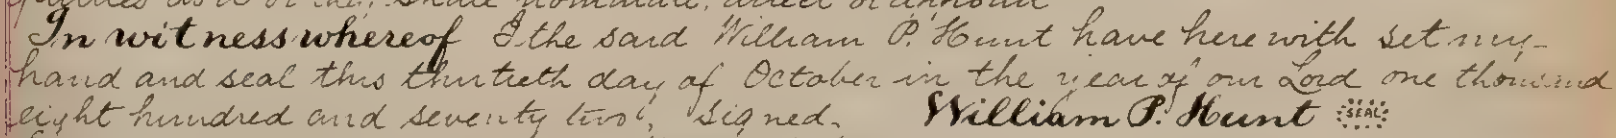 shall nominate, direct or appoint
In witness whereof I the said William P. Hunt have here with set my
hand and seal this thirtieth day of October in the year of our Lord one thousand
eight hundred and seventy two, Signed. William P. Hunt SEAL